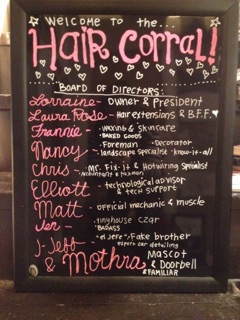 WELCOME TO THE...
HAIR CORRAL!
BOARD OF DIRECTORS:
Lorraine- OWNER & PRESIDENT
Laura Rose- Hair extensions & B.F.F.
Frannie - • waxing & skincare
• BAKED GOODS
Nancy - • Foreman • Decorator
• landscape specialist • know-it-all
Chris - • MR. Fix-it & Hotwiring Specialist
• Accountants & taxman
Elliott - • technological advisor
& tech support
Matt - • official mechanic & muscle
Jen - • tinyhouse czar
• BADASS
J-Jeff - • "el jefe" • Fake brother
• expert car detailing
& Mothra MASCOT
& Doorbell
& FAMILIAR